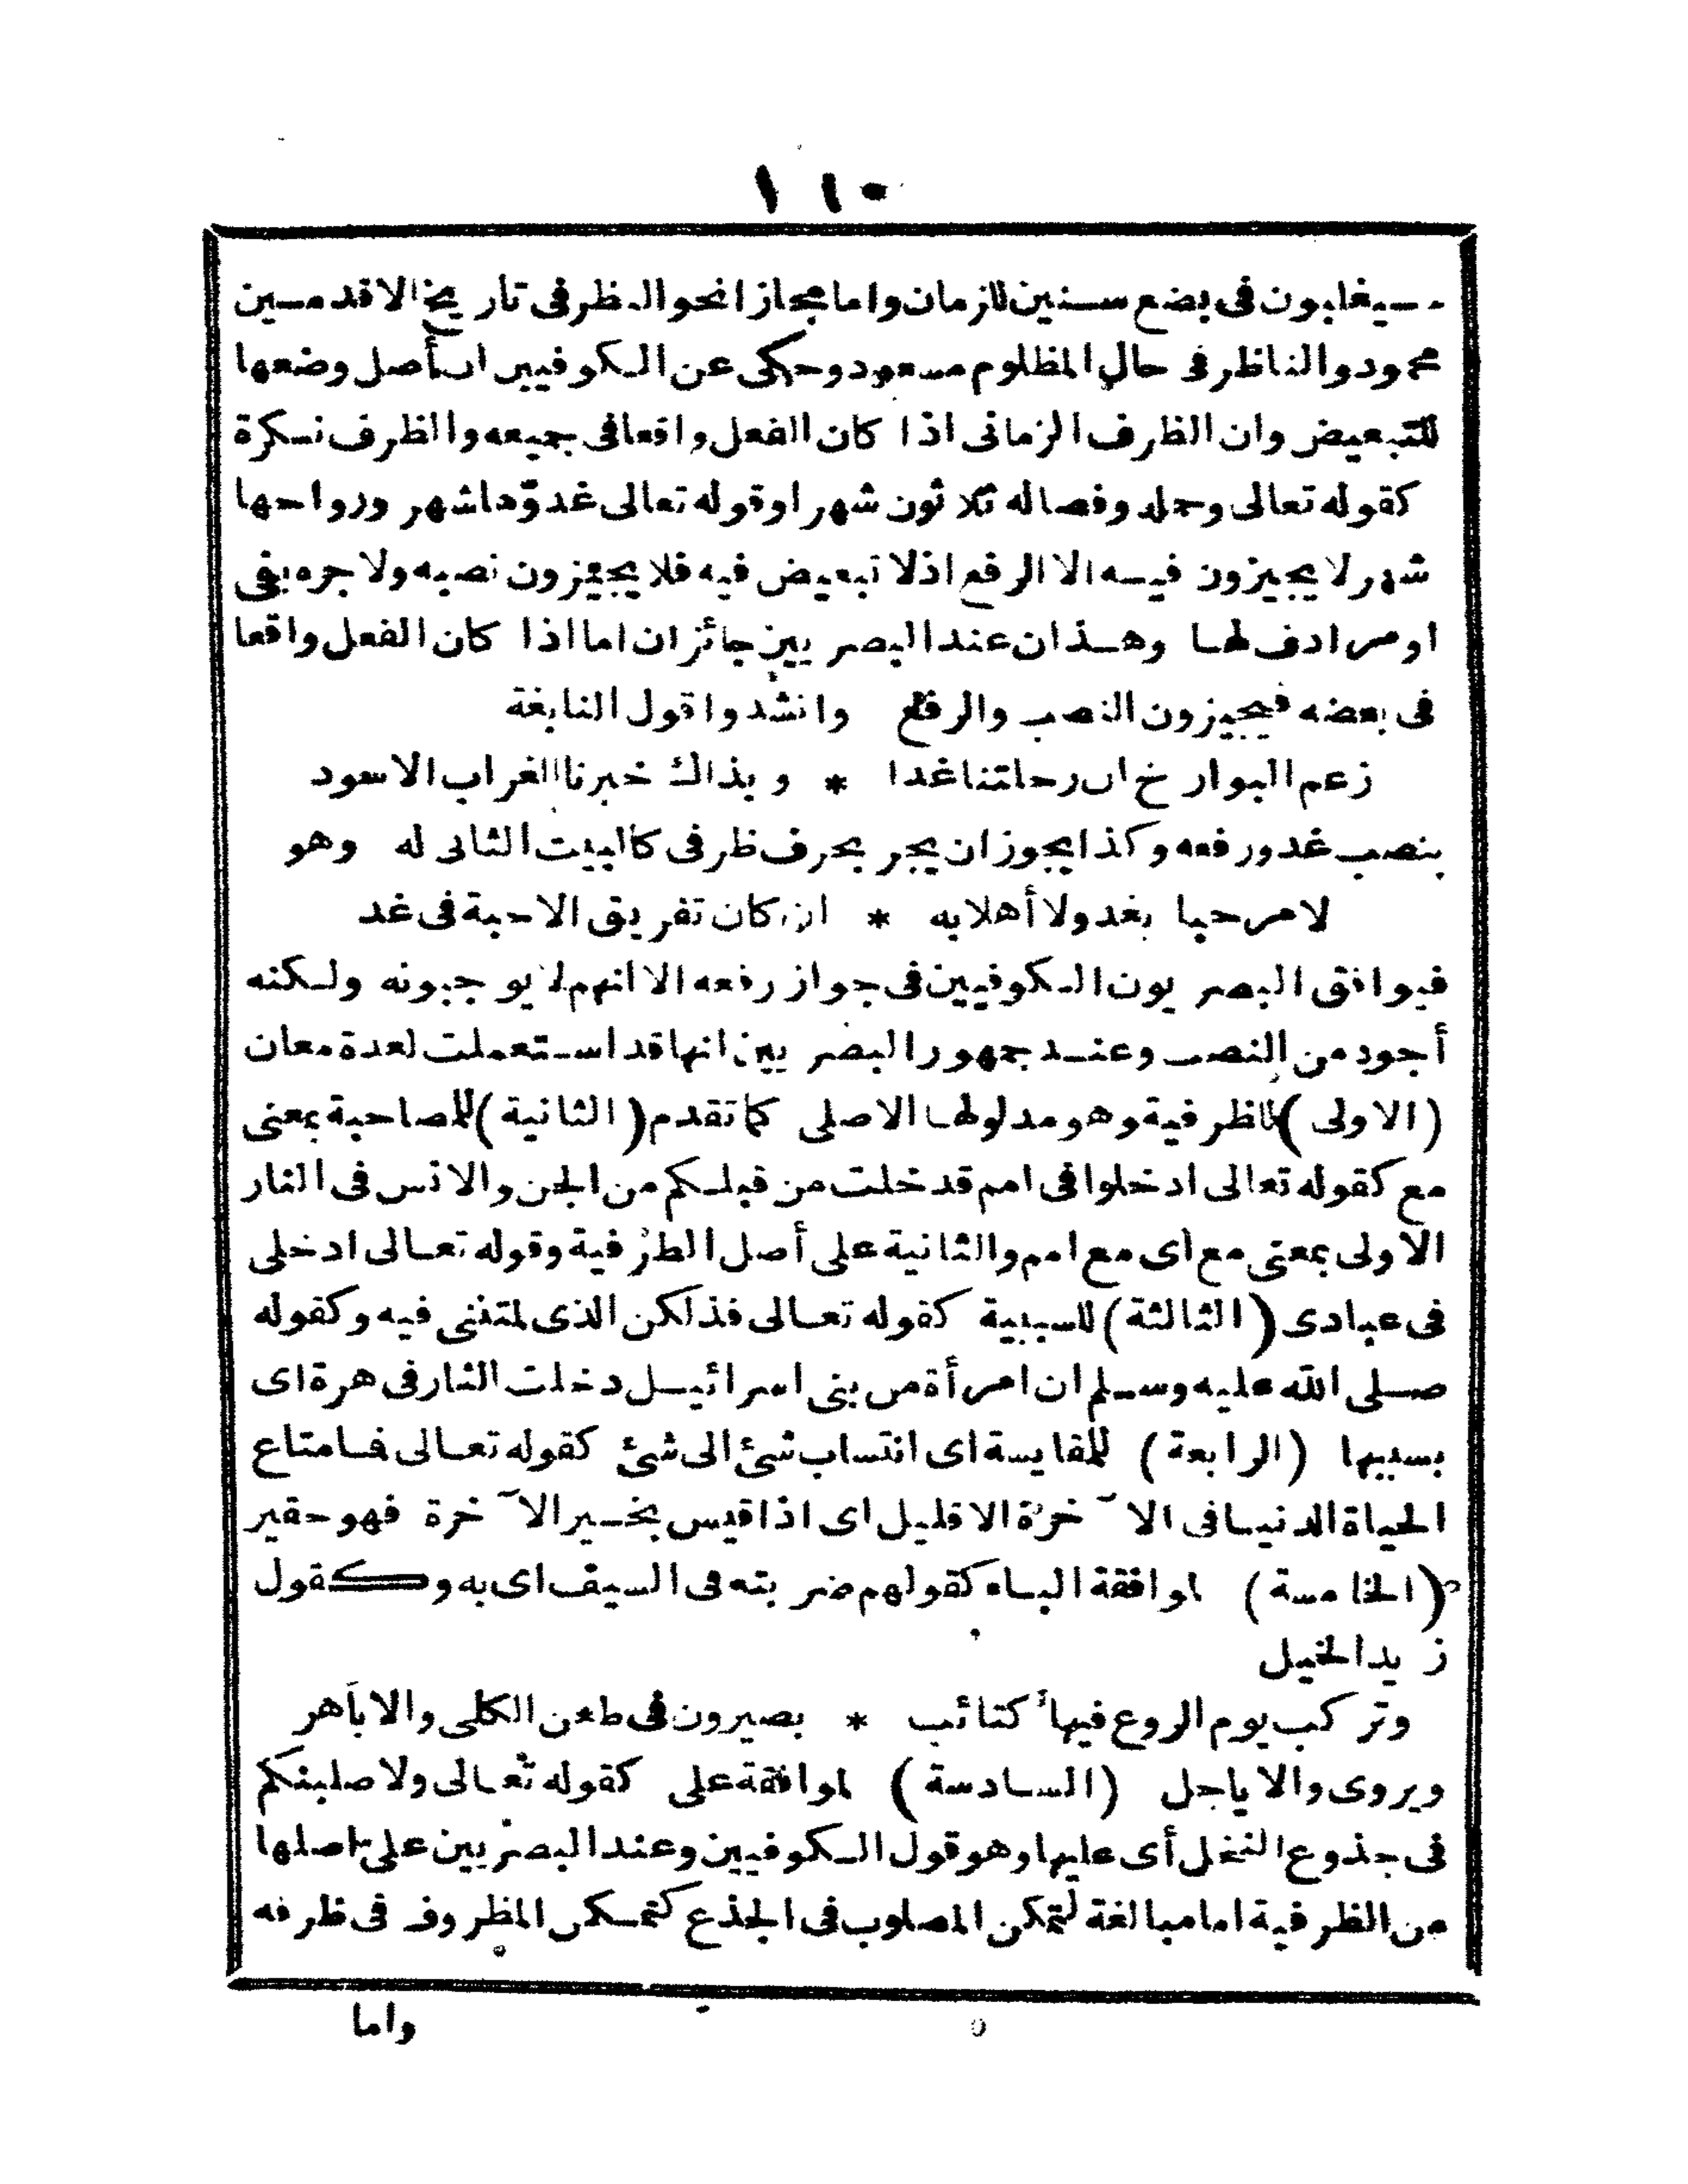 ١١٠
سيغلبون فى بضع سنين للزمان واما مجازا نحو النظر فى تاريخ الاقدمين
محمود والناظر فى حال المظلوم مسعود وحكى عن الكوفيين ان أصل وضعها
للتبعيض وان الظرف الزمانى اذا كان الفعل واقعا فى جميعه والظرف نكرة
كقوله تعالى وحمله وفصاله ثلاثون شهرا وقوله تعالى غدوّها شهر ورواحها
شهر لا يجيزون فيه الا الرفع اذلا تبعيض فيه فلا يجيزون نصبه ولا جره بفى
او مرادف لها وهذان عند البصريين جائزان اما اذا كان الفعل واقعا
فى بعضه فيجيزون النصب والرفع وانشدوا قول النابغة
زعم البوارخ ان رحلتنا غدا * وبذاك خبرنا الغراب الاسود
بنصب غد ورفعه وكذا يجوز ان يجر بحرف ظرفى كالبيت الثانى له وهو
لا مرحبا بغد ولا أهلا به * ان كان تفريق الاحبة فى غد
فيوافق البصريون الكوفيين فى جواز رفعه الا انهم لا يوجبونه ولكنه
أجود من النصب وعند جمهور البصريين انها قد استعملت لعدة معان
(الاولى) للظرفية وهو مدلولها الاصلى كما تقدم (الثانية) للمصاحبة بمعنى
مع كقوله تعالى ادخلوا فى امم قد خلت من قبلكم من الجن والانس فى النار
الاولى بمعنى مع اى مع امم والثانية على أصل الظرفية وقوله تعالى ادخلى
فى عبادى (الثالثة) للسببية كقوله تعالى فذلكن الذى لمتننى فيه وكقوله
صلى الله عليه وسلم ان امرأة من بنى اسرائيل دخلت النار فى هرة اى
بسببها (الرابعة) للمقايسة اى انتساب شئ الى شئ كقوله تعالى فما متاع
الحياة الدنيا فى الآخرة الا قليل اى اذا قيس بخير الآخرة فهو حقير
(الخامسة) لموافقة الباء كقولهم ضربته فى السيف اى به وكقول
زيد الخيل
وتركب يوم الروع فيها كتائب * بصيرون فى طعن الكلى والاباهر
ويروى والاياجل (السادسة) لموافقة على كقوله تعالى ولاصلبنكم
فى جذوع النخل أى عليها وهو قول الكوفيين وعند البصريين على اصلها
من الظرفية اما مبالغة لتمكن المصلوب فى الجذع كتمكن المظروف فى ظرفه
واما